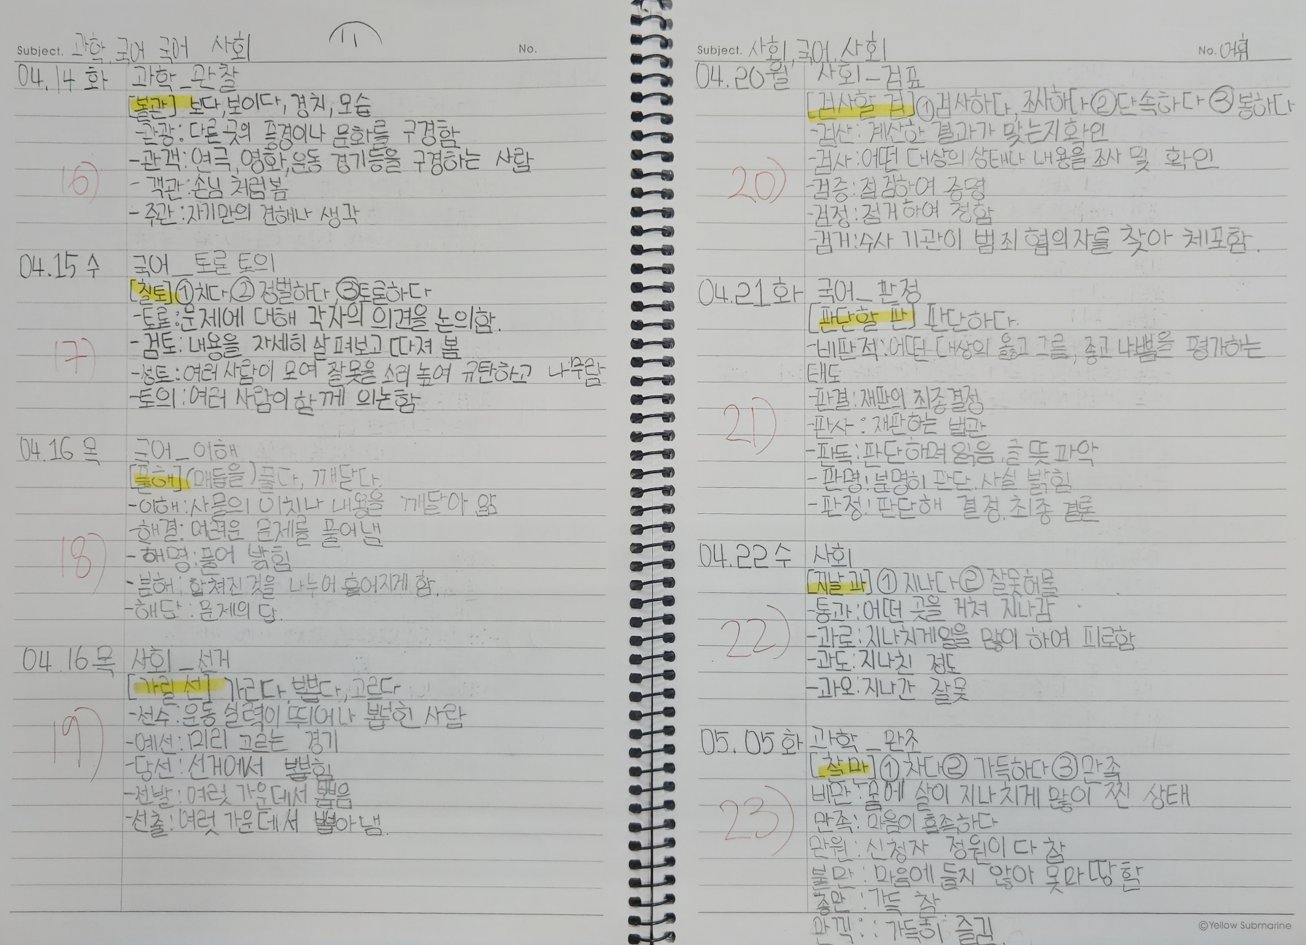 Subject. 과학, 국어 국어 사회
No.
04.14 화 과학_관찰
[볼관] 보다, 보이다, 경치, 모습
-관광: 다른 곳의 풍경이나 문화를 구경함
16) -관객: 연극, 영화, 운동 경기등을 구경하는 사람
- 객관: 손님 처럼 봄
- 주관: 자기만의 견해나 생각
04.15 수 국어_토론 토의
[칠토] ①치다 ② 정벌하다 ③토론하다
-토론: 문제에 대해 각자의 의견을 논의함.
17) - 검토: 내용을 자세히 살펴보고 따져 봄
-성토: 여러 사람이 모여 잘못을 소리 높여 규탄하고 나무람
-토의: 여러 사람이 함께 의논함
04.16 목 국어_이해
[풀해] (매듭을) 풀다, 깨닫다.
-이해: 사물의 이치나 내용을 깨달아 앎
-해결: 어려운 문제를 풀어냄
18) - 해명: 풀어 밝힘
-분해: 합쳐진것을 나누어 흩어지게 함.
-해답: 문제의 답.
04.16 목 사회_선거
[가릴 선] 가리다, 뽑다, 고르다
-선수: 운동 실력이 뛰어나 뽑힌 사람
19) -예선: 미리 고르는 경기
-당선: 선거에서 뽑힘
-선발: 여럿 가운데서 뽑음
-선출: 여럿 가운데서 뽑아냄.
Subject. 사회, 국어, 사회
No. 어휘
04.20월 사회_검표
[검사할 검] ①검사하다, 조사하다 ②단속하다 ③봉하다
-검산: 계산한 결과가 맞는지 확인
-검사: 어떤 대상의 상태나 내용을 조사 및 확인
20) -검증: 점검하여 증명
-검정: 점거하여 정함
-검거: 수사 기관이 범죄 혐의자를 찾아 체포함.
04.21화 국어_판정
[판단할 판] 판단하다.
-비판적: 어떤 대상의 옳고 그름, 좋고 나쁨을 평가하는
태도
-판결: 재판의 최종결정
21) -판사: 재판하는 법관
-판독: 판단하며 읽음. 글 뜻 파악
-판명: 분명히 판단. 사실 밝힘
-판정: 판단해 결정. 최종 결론
04.22 수 사회
[지날 과] ① 지나다 ② 잘못허물
-통과: 어떤 곳을 거쳐 지나감
22) -과로: 지나치게일을 많이 하여 피로함
-과도: 지나친 정도
-과오: 지나간 잘못
05.05화 과학_만조
[찰 만] ① 차다 ② 가득하다 ③ 만족
비만: 몸에 살이 지나치게 많이 찐 상태
23) 만족: 마음이 흡족하다
만원: 신청자 정원이 다 참
불만: 마음에 들지 않아 못마땅함
충만: 가득 참.
만끽: : 가득히 즐김.
©Yellow Submarine